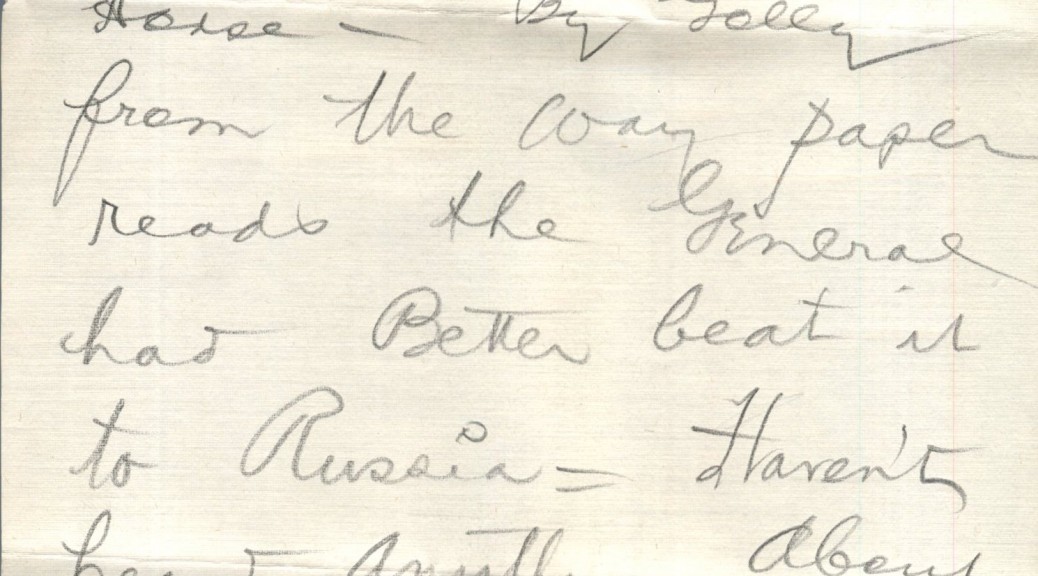 Horse — By Golly
from the way paper
reads the General
had Better beat it
to Russia = Haven't
About